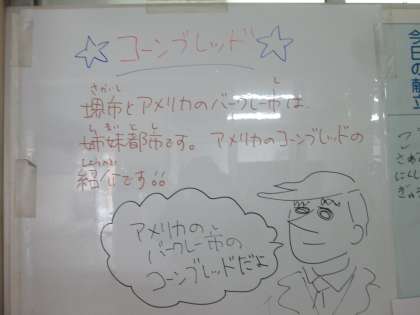 ☆コーンブレッド☆
さかいし し
堺市とアメリカのバークレー市は、
しまいとし
姉妹都市です。アメリカのコーンブレッドの
しょうかい
紹介です。
アメリカの
し
バークレー市の
コーンブレッドだよ
今日の献立